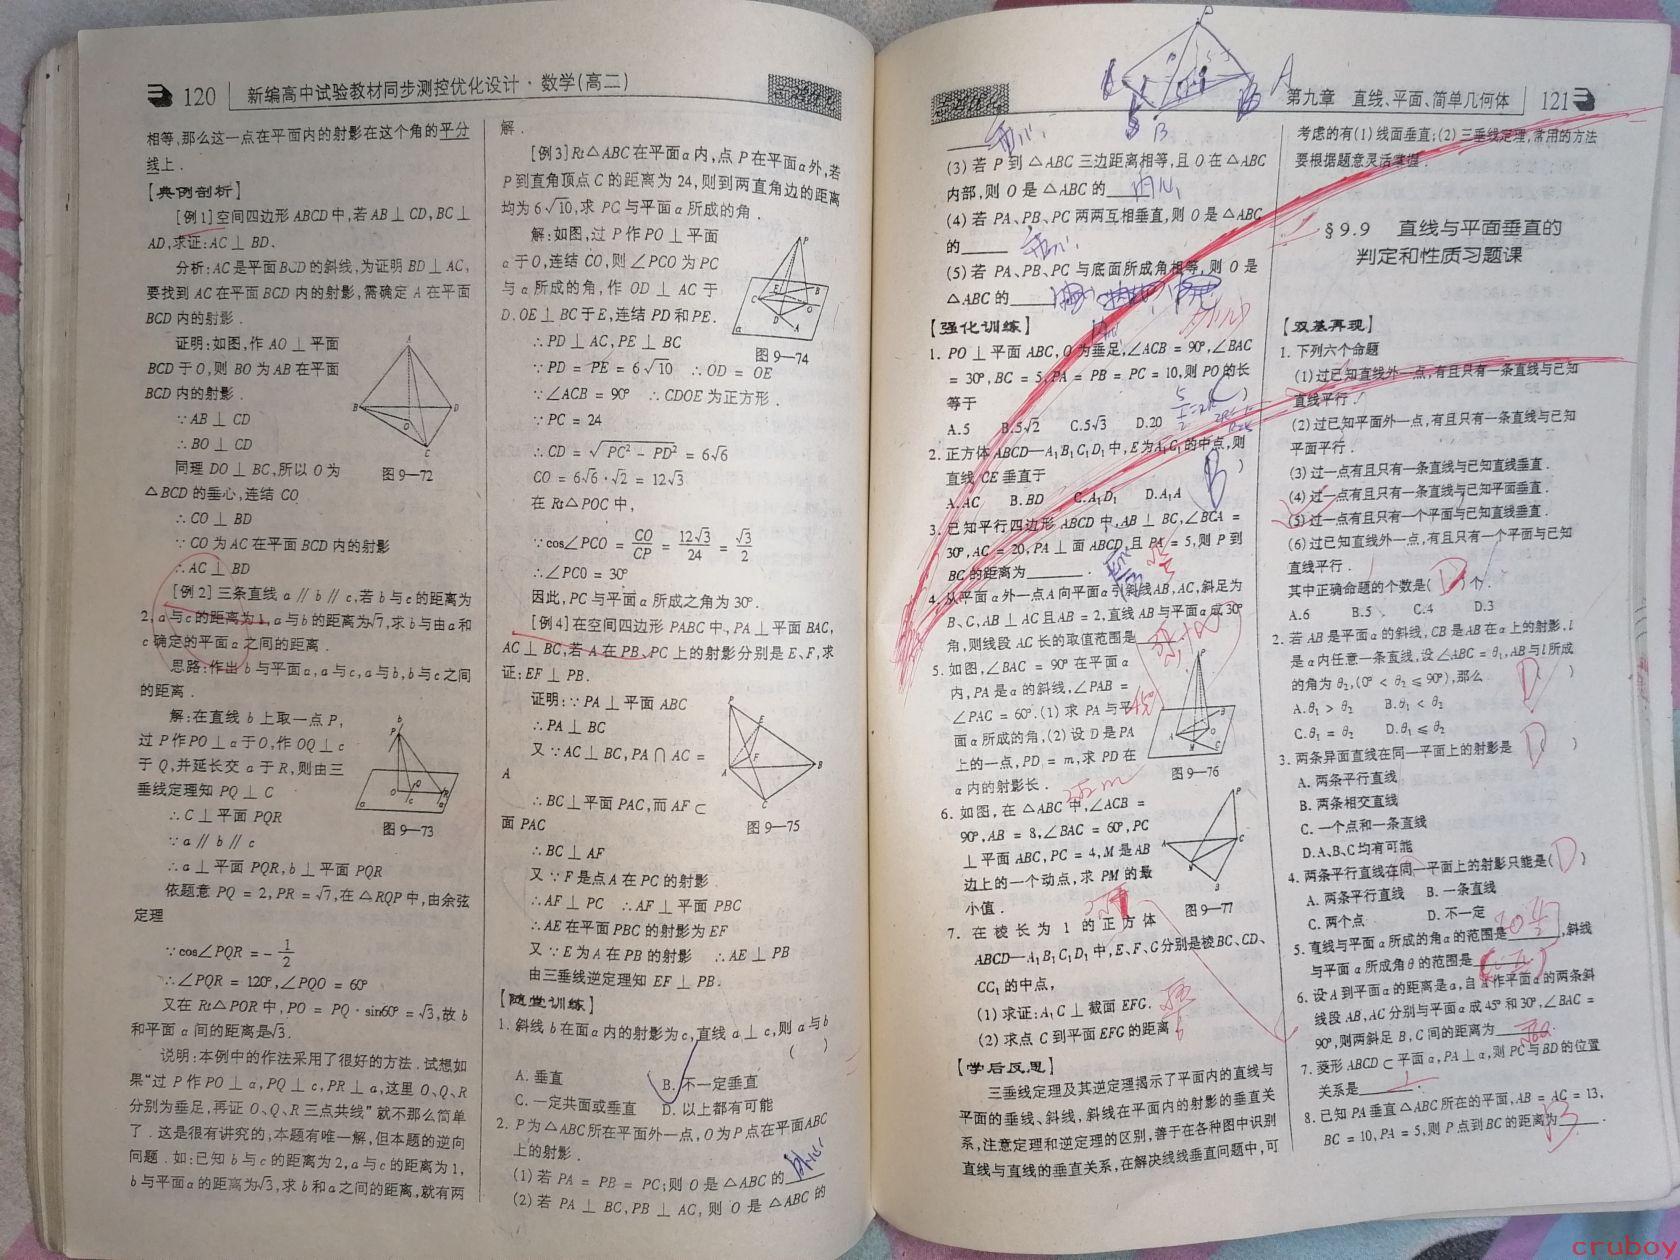 120 新编高中试验教材同步测控优化设计·数学(高二)
相等,那么这一点在平面内的射影在这个角的平分
线上.
【典例剖析】
[例1]空间四边形ABCD中,若AB⊥CD,BC⊥
AD,求证:AC⊥BD.
分析:AC是平面BCD的斜线,为证明BD⊥AC,
要找到AC在平面BCD内的射影,需确定A在平面
BCD内的射影.
证明:如图,作AO⊥平面
BCD于O,则BO为AB在平面
BCD内的射影.
∵AB⊥CD
∴BO⊥CD
同理DO⊥BC,所以O为
△BCD的垂心,连结CO
∴CO⊥BD
∵CO为AC在平面BCD内的射影
∴AC⊥BD
图9—72
[例2]三条直线a∥b∥c,若b与c的距离为
2,a与c的距离为1,a与b的距离为√7,求b与由a和
c确定的平面α之间的距离.
思路:作出b与平面α,a与c,a与b,b与c之间
的距离.
解:在直线b上取一点P,
过P作PO⊥α于O,作OQ⊥c
于Q,并延长交a于R,则由三
垂线定理知PQ⊥C
∴C⊥平面PQR
∵a∥b∥c
∴a⊥平面PQR,b⊥平面PQR
图9—73
依题意PQ=2,PR=√7,在△RQP中,由余弦
定理
∵cos∠PQR=-1/2
∴∠PQR=120°,∠PQO=60°
又在Rt△PQR中,PO=PQ·sin60°=√3,故b
和平面α间的距离是√3.
说明:本例中的作法采用了很好的方法.试想如
果“过P作PO⊥α,PQ⊥c,PR⊥a,这里O、Q、R
分别为垂足,再证O、Q、R三点共线”就不那么简单
了.这是很有讲究的;本题有唯一解,但本题的逆向
问题.如:已知b与c的距离为2,a与c的距离为1,
b与平面α的距离为√3,求b和a之间的距离,就有两
解.
[例3]Rt△ABC在平面α内,点P在平面α外,若
P到直角顶点C的距离为24,则到两直角边的距离
均为6√10,求PC与平面α所成的角.
解:如图,过P作PO⊥平面
α于O,连结CO,则∠PCO为PC
与α所成的角,作OD⊥AC于
D,OE⊥BC于E,连结PD和PE.
∴PD⊥AC,PE⊥BC
图9—74
∵PD=PE=6√10 ∴OD=OE
∵∠ACB=90° ∴CDOE为正方形.
∵PC=24
∴CD=√(PC²-PD²)=6√6
CO=6√6·√2=12√3
在Rt△POC中,
∵cos∠PCO=CO/CP=12√3/24=√3/2
∴∠PCO=30°
因此,PC与平面α所成之角为30°.
[例4]在空间四边形PABC中,PA⊥平面BAC,
AC⊥BC,若A在PB、PC上的射影分别是E、F,求
证:EF⊥PB.
证明:∵PA⊥平面ABC
∴PA⊥BC
又∵AC⊥BC,PA∩AC=
A
∴BC⊥平面PAC,而AF⊂
面PAC
图9—75
∴BC⊥AF
又∵F是点A在PC的射影
∴AF⊥PC ∴AF⊥平面PBC
∴AE在平面PBC的射影为EF
又∵E为A在PB的射影 ∴AE⊥PB
由三垂线逆定理知EF⊥PB.
【随堂训练】
1.斜线b在面α内的射影为c,直线a⊥c,则a与b
( )
A.垂直 B.不一定垂直
C.一定共面或垂直 D.以上都有可能
2.P为△ABC所在平面外一点,O为P点在平面ABC
上的射影.
(1)若PA=PB=PC;则O是△ABC的 外心
(2)若PA⊥BC,PB⊥AC,则O是△ABC的
第九章 直线、平面、简单几何体 121
垂心
(3)若P到△ABC三边距离相等,且O在△ABC
内部,则O是△ABC的 内心
(4)若PA、PB、PC两两互相垂直,则O是△ABC
的 垂心
(5)若PA、PB、PC与底面所成角相等,则O是
△ABC的 外心
【强化训练】
1.PO⊥平面ABC,O为垂足,∠ACB=90°,∠BAC
=30°,BC=5,PA=PB=PC=10,则PO的长
等于 ( C )
A.5 B.5√2 C.5√3 D.20
2.正方体ABCD—A₁B₁C₁D₁中,E为A₁C₁的中点,则
直线CE垂直于 ( B )
A.AC B.BD C.A₁D₁ D.A₁A
3.已知平行四边形ABCD中,AB⊥BC,∠BCA=
30°,AC=20,PA⊥面ABCD,且PA=5,则P到
BC的距离为
4.从平面α外一点A向平面α引斜线AB、AC,斜足为
B、C,AB⊥AC且AB=2,直线AB与平面α成30°
角,则线段AC长的取值范围是
5.如图,∠BAC=90°在平面α
内,PA是α的斜线,∠PAB=
∠PAC=60°.(1)求PA与平
面α所成的角,(2)设D是PA
上的一点,PD=m,求PD在
α内的射影长.
图9—76
6.如图,在△ABC中,∠ACB=
90°,AB=8,∠BAC=60°,PC
⊥平面ABC,PC=4,M是AB
边上的一个动点,求PM的最
小值.
图9—77
7.在棱长为1的正方体
ABCD—A₁B₁C₁D₁中,E、F、G分别是棱BC、CD、
CC₁的中点,
(1)求证:A₁C⊥截面EFG.
(2)求点C到平面EFG的距离
【学后反思】
三垂线定理及其逆定理揭示了平面内的直线与
平面的垂线、斜线,斜线在平面内的射影的垂直关
系,注意定理和逆定理的区别,善于在各种图中识别
直线与直线的垂直关系,在解决线线垂直问题中,可
考虑的有(1)线面垂直;(2)三垂线定理,常用的方法
要根据题意灵活掌握.
§9.9 直线与平面垂直的
判定和性质习题课
【双基再现】
1.下列六个命题
(1)过已知直线外一点,有且只有一条直线与已知
直线平行.
(2)过已知平面外一点,有且只有一条直线与已知
平面平行.
(3)过一点有且只有一条直线与已知直线垂直.
(4)过一点有且只有一条直线与已知平面垂直.
(5)过一点有且只有一个平面与已知直线垂直.
(6)过已知直线外一点,有且只有一个平面与已知
直线平行.
其中正确命题的个数是( D )个.
A.6 B.5 C.4 D.3
2.若AB是平面α的斜线,CB是AB在α上的射影,l
是α内任意一条直线,设∠ABC=θ₁,AB与l所成
的角为θ₂,(0°<θ₂≤90°),那么 ( D )
A.θ₁>θ₂ B.θ₁<θ₂
C.θ₁=θ₂ D.θ₁≤θ₂
3.两条异面直线在同一平面上的射影是 ( D )
A.两条平行直线
B.两条相交直线
C.一个点和一条直线
D.A、B、C均有可能
4.两条平行直线在同一平面上的射影只能是( D )
A.两条平行直线 B.一条直线
C.两个点 D.不一定
5.直线与平面α所成的角α的范围是 ,斜线
与平面α所成角θ的范围是
6.设A到平面α的距离是a,自A作平面α的两条斜
线段AB,AC分别与平面α成45°和30°,∠BAC=
90°,则两斜足B,C间的距离为
7.菱形ABCD⊂平面α,PA⊥α,则PC与BD的位置
关系是 ⊥ .
8.已知PA垂直△ABC所在的平面,AB=AC=13,
BC=10,PA=5,则P点到BC的距离为 13 .
cruboy